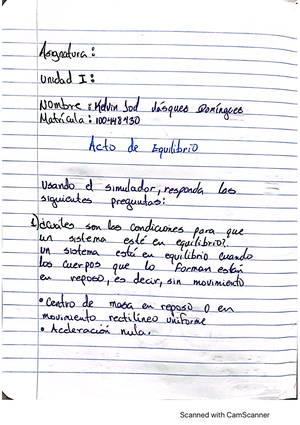 Asignatura:
Unidad I:
Nombre: Kelvin Jod Jásques Domíngues
Matrícula: 100448930
Acto de Equilibrio
Usando el simulador, responda las
siguientes preguntas:
1) ¿Cuáles son las condiciones para que
un sistema esté en equilibrio?.
un sistema está en equilibrio cuando
los cuerpos que lo forman están
en reposo, es decir, sin movimiento
• Centro de masa en reposo o en
movimiento rectilíneo uniforme
• Aceleración nula.
Scanned with CamScanner